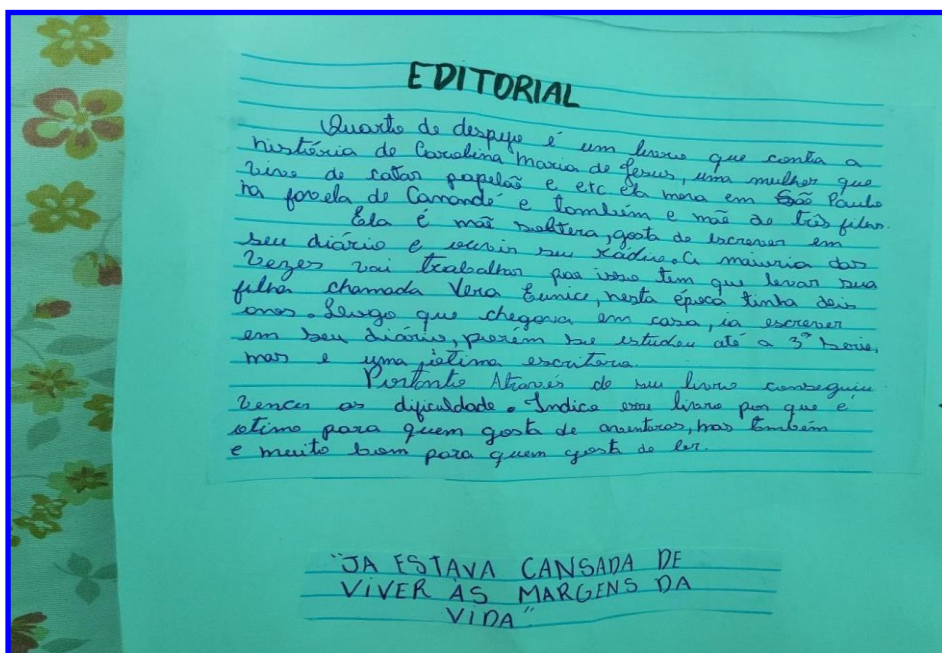 EDITORIAL
Quarto de despejo é um livro que conta a
história de Carolina Maria de Jesus, uma mulher que
vive de catar papelão e etc ela mora em São Paulo
na favela de Canandé e também e mãe de três filhos.
Ela é mãe solteira, gosta de escrever em
seu diário e ouvir seu rádio. A maioria das
vezes vai trabalhar por isso tem que levar sua
filha chamada Vera Eunice, nesta época tinha dois
anos. Logo que chegava em casa, ia escrever
em seu diário, porém só estudou até a 3ª serie,
mas e uma ótima escritora.
Portanto Através do seu livro conseguiu
vencer as dificuldade. Indico esse livro por que é
otimo para quem gosta de aventuras, mas também
e muito bom para quem gosta de ler.
"JA ESTAVA CANSADA DE
VIVER ÀS MARGENS DA
VIDA"